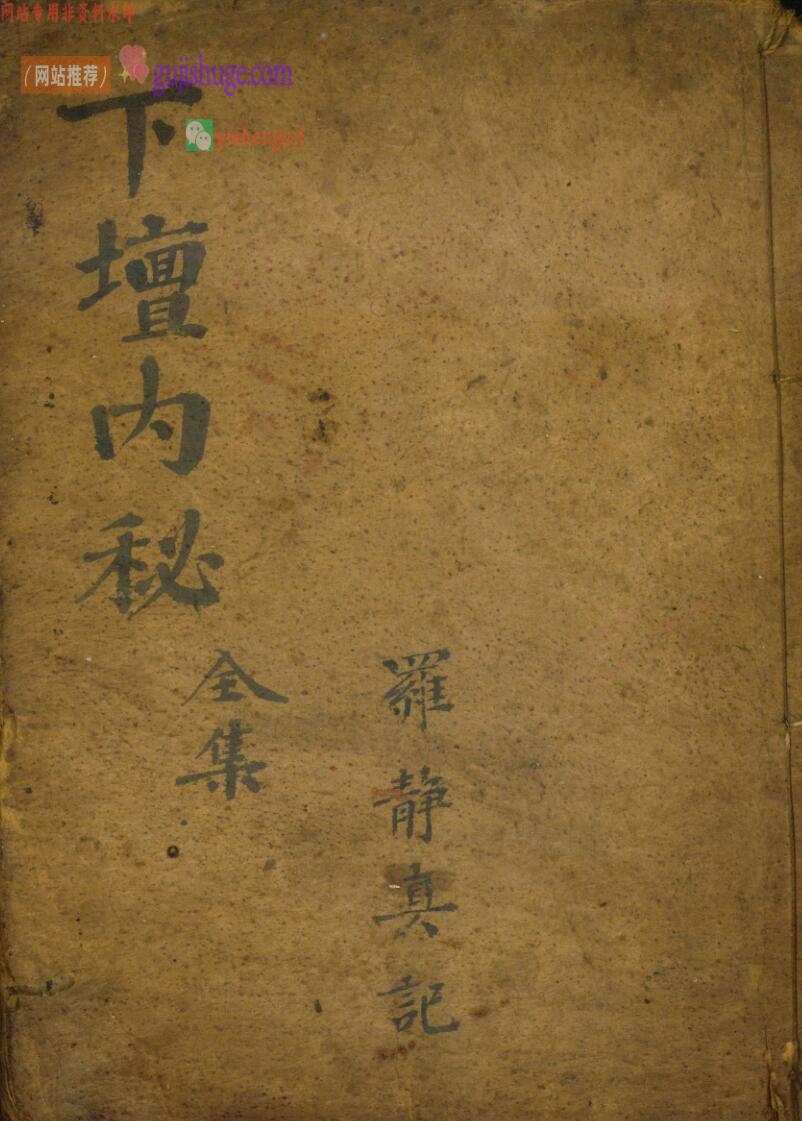 网站专用非资料水印
（网站推荐）
gujishuge.com
下壇内秘
全集
羅静真記